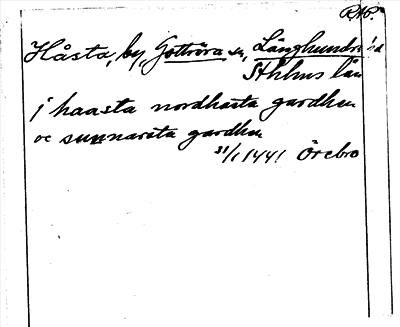 RAP.
Håsta, by, Gottröra sn, Långhundra hd
Sthlms län
j haasta nordhasta gardhen
oc sunnarsta gardhen
31/1 1441 Örebro